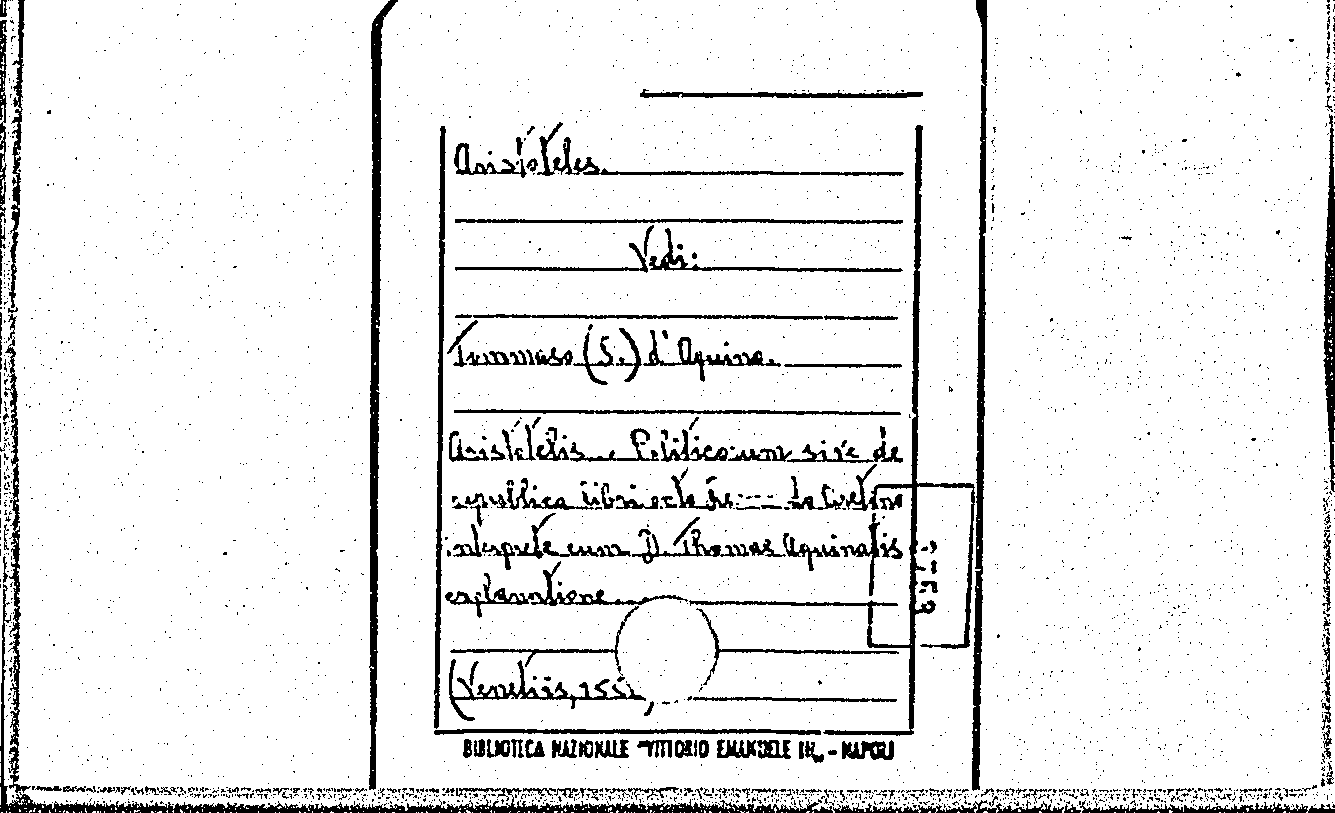 Aristoteles.
Vedi:
Tommaso (S.) d'Aquino.
Aristotelis. Politicorum sive de
republica libri octo
interprete cum D. Thomae Aquinatis
explanatione.
(Venetiis, 155
BIBLIOTECA NAZIONALE "VITTORIO EMANUELE III„ - NAPOLI